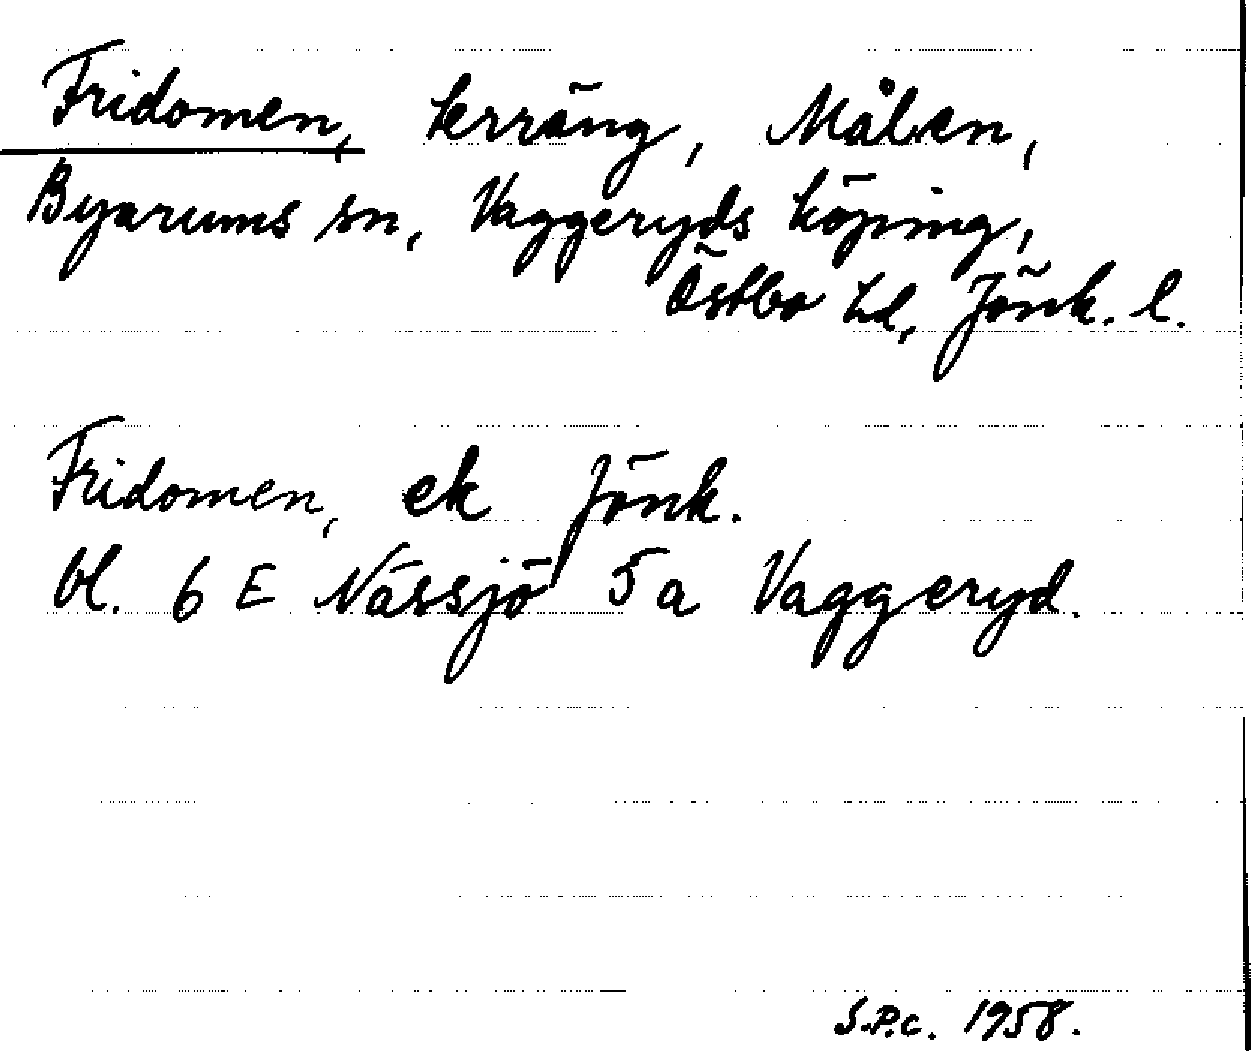 Fridomen, terräng, Målen,
Byarums sn, Vaggeryds köping,
Östbo hd, Jönk. l.
Fridomen, ek Jönk.
bl. 6 E Nässjö 5 a Vaggeryd.
S.P.c. 1958.